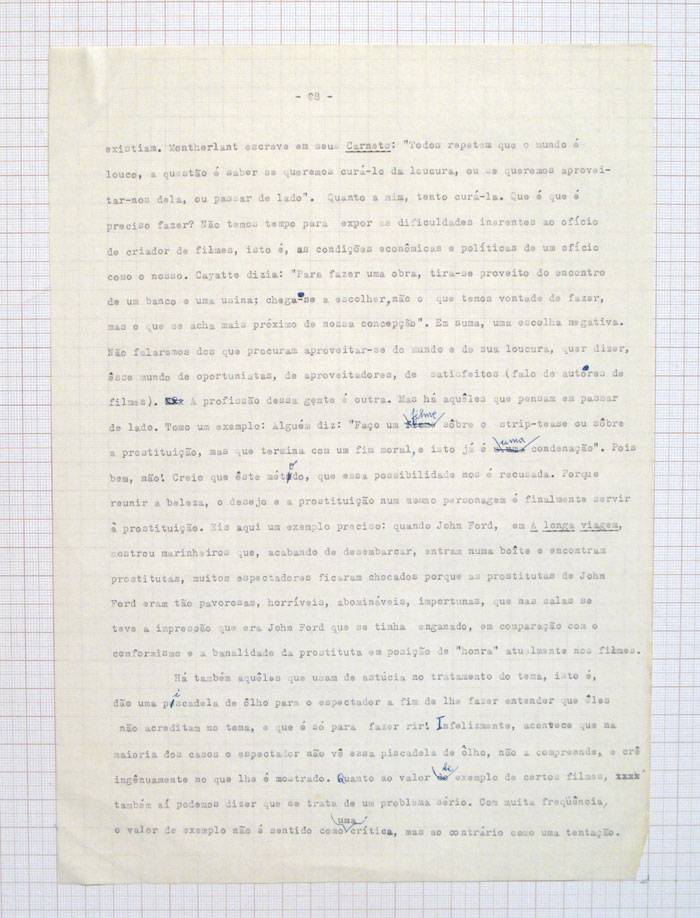 - 28 -
existiam. Montherlant escreve em seus Carnets: "Todos repetem que o mundo é
louco, a questão é saber se queremos curá-lo da loucura, ou se queremos aprovei-
tar-nos dela, ou passar de lado". Quanto a mim, tento curá-la. Que é que é
preciso fazer? Não temos tempo para expor as dificuldades inerentes ao ofício
de criador de filmes, isto é, as condições econômicas e políticas de um ofício
como o nosso. Cayatte dizia: "Para fazer uma obra, tira-se proveito do encontro
de um banco e uma usina; chega-se a escolher,não o que temos vontade de fazer,
mas o que se acha mais próximo de nossa concepção". Em suma, uma escolha negativa.
Não falaremos dos que procuram aproveitar-se do mundo e de sua loucura, quer dizer,
êsse mundo de oportunistas, de aproveitadores, de satisfeitos (falo de autores de
filmes). A profissão dessa gente é outra. Mas há aquêles que pensam em passar
de lado. Tomo um exemplo: Alguém diz: "Faço um filme sôbre o strip-tease ou sôbre
a prostituição, mas que termina com um fim moral,e isto já é uma condenação". Pois
bem, não! Creio que êste método, que essa possibilidade nos é recusada. Porque
reunir a beleza, o desejo e a prostituição num mesmo personagem é finalmente servir
à prostituição. Eis aqui um exemplo preciso: quando John Ford, em A longa viagem,
mostrou marinheiros que, acabando de desembarcar, entram numa boîte e encontram
prostitutas, muitos espectadores ficaram chocados porque as prostitutas de John
Ford eram tão pavorosas, horríveis, abomináveis, importunas, que nas salas se
teve a impressão que era John Ford que se tinha enganado, em comparação com o
conformismo e a banalidade da prostituta em posição de "honra" atualmente nos filmes.
Há também aquêles que usam de astúcia no tratamento do tema, isto é,
dão uma piscadela de ôlho para o espectador a fim de lhe fazer entender que êles
não acreditam no tema, e que é só para fazer rir! Infelizmente, acontece que na
maioria dos casos o espectador não vê essa piscadela de ôlho, não a compreende, e crê
ingênuamente no que lhe é mostrado. Quanto ao valor de exemplo de certos filmes, xxxx
também aí podemos dizer que se trata de um problema sério. Com muita freqüência,
o valor de exemplo não é sentido como uma crítica, mas ao contrário como uma tentação.